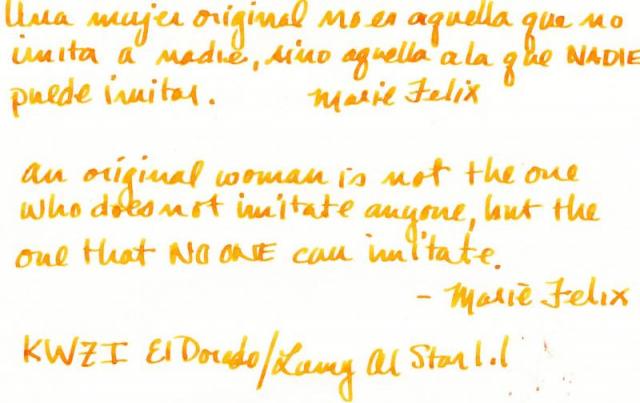 Una mujer original no es aquella que no
imita a nadie, sino aquella a la que NADIE
puede imitar. Marie Felix
an original woman is not the one
who does not imitate anyone, but the
one that NO ONE can imitate.
- Marie Felix
KWZI El Dorado/Lamy Al Star 1.1